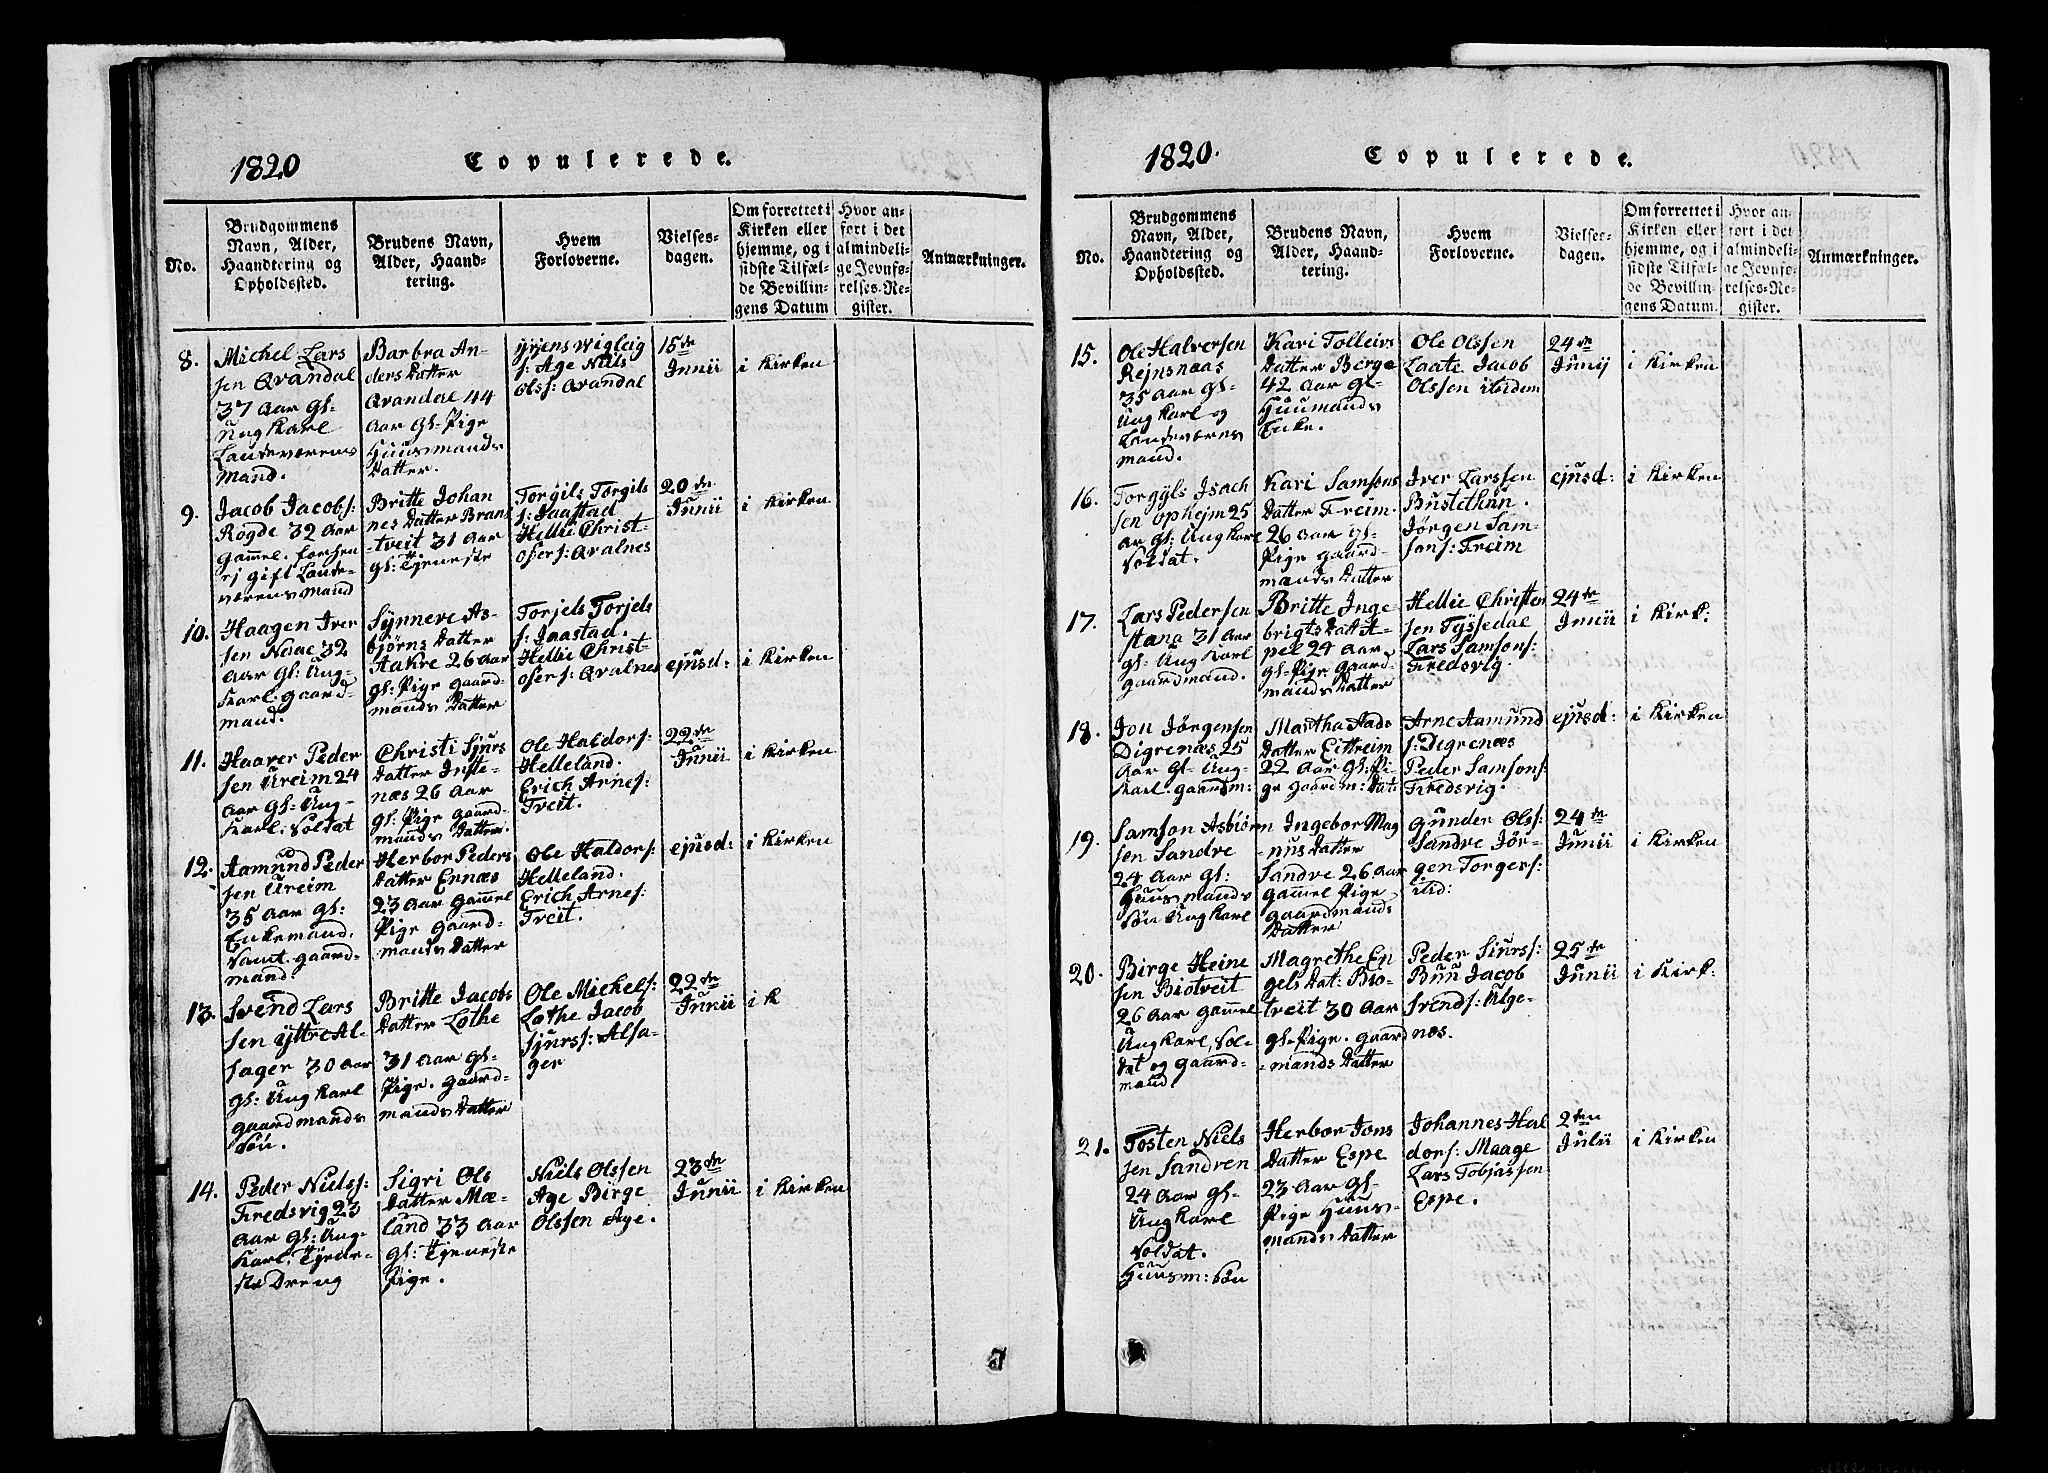 1820 Copulerede.
No.
Brudgommens
Navn, Alder,
Haandtering og
Opholdssted.
Brudens Navn,
Alder, Haand-
tering.
Hvem
Forloverne.
Vielses-
dagen.
Om forrettet i
Kirken eller
hjemme, og i
sidste Tilfæl-
de Bevillin-
gens Datum
Hvor an-
fort i det
almindeli-
ge Jevnfø-
relses-Re-
gister.
Anmærkninger.
8.
Michel Lars
sen Qvandal
37 Aar Gl-
Ungkarl
Landeværens
Mand.
Barbra An-
ders Datter
Qvandal 44
Aar Gl-Pige
Huusmands
Datter.
s: Age Niels
Olss: Qvandal
15de
Junii
i Kirken
9.
Jacob Jacobs:
Rogde 32 Aar
gammel.
ej gift Lande-
værens Mand
Britte Johan
nes Datter Bran
-tveit 31 Aar
gl: Tjeneste
Torgils Torgils
s: Jaastad
Hellie Christ-
ofers: Qvalnes
20de
Junii
i Kirken
10.
Haagen Iver
sen Naae 32
Aar Gl: Ung-
Karl. gaard-
mand.
Synneve As-
bjørns Datter
Aakre 26 Aar
gl: Pige Gaard-
mands Datter
Torjels Torjels
s: Jaastad.
Hellie Christ-
ofers: Qvalnes
ejusd:
i Kirken
11.
Haarer Peder
sen Ureim 24
Aar Gl: Ung-
Karl. Soldat
Christi Sjurs
Datter Inste-
næs 26 Aar
gl: Pige Gaard-
mands Datter.
Ole Haldors:
Helleland.
Erich Arnes:
Treit.
22de
Junii
i Kirken
12.
Aamund Peder
sen Ureim
35 Aar Gl:
Enkemand.
Samt. gaard-
mand.
Herbor Peders
Datter Ennæs
23 Aar Gammel
Pige Gaard-
mands Datter
Ole Haldors:
Helleland.
Erich Arnes:
Treit.
ejusd:
i Kirken
13.
Svend Lars
sen Yttre Al-
sager 30 Aar
Gl: Ungkarl
gaardmands
Søn.
Britte Jacobs
Datter Lothe
31 Aar Gl-
Pige. Gaard-
mands Datter
Ole Michels:
Lothe Jacob
Sjurss: Alsa-
ger
22de
Junii
i K
14.
Peder Nielss:
Fredsvig 23
Aar Gl: Ung-
Karl. Tjene-
ste Dreng
Sigri Ols
Datter Mæ-
land 33 Aar
Gl: Tjeneste
Pige.
Niels Olssen
Age Birge
Olssen Age.
23de
Junii
i Kirken
7
1820. Copulerede.
No.
Brudgommens
Navn, Alder,
Haandtering og
Opholdssted.
Brudens Navn,
Alder, Haand-
tering.
Hvem
Forloverne.
Vielses-
dagen.
Om forrettet i
Kirken eller
hjemme, og i
sidste Tilfæl-
de Bevillin-
gens Datum.
Hvor an-
fort i det
almindeli-
ge Jevnfø-
relses-Re-
gister.
Anmærkninger.
15.
Ole Halversen
Rejnsnaas
35 Aar Gl-
Ungkarl og
Landeværens
mand.
Kari Tolleivs
Datter Berge
42 Aar Gl-
Huumands
Enke.
Ole Olssen
Laate Jacob
Olssen itidem
24de
Junij
i Kirken
16.
Torgyls Isach
sen Ophejm 25
Ar Gl: Ungkarl
Soldat.
Kari Samsons
Datter Freim
26 Aar Gl-
Pige Gaard-
mands Datter
Iver Larssen
Bustethun.
Jørgen Sam-
sons: Freim
ejusd:
i Kirken
17.
Lars Pedersen
Stana 31 Aar
Gl: Ungkarl
gaardmand.
Britte Inge-
brigts Datt A-
pel 24 Aar
Gl-Pige Gaard-
mands Datter
Hellie Christen
sen Tyssedal
Lars Samsons:
Fredsvig.
24de
Junii
i Kirk:
18.
Jon Jørgensen
Digrenæs 25
Aar Gl- Ung-
Karl. gaardm:
Martha Aads
Datter Eittreim
22 Aar Gl: Pi-
ge gaardm: Dat:
Arne Aamund
s: Digrenæs
Peder Samsons:
Fredsvig.
ejusd:
i Kirken
19.
Samson Asbiørn
sen Sandve
24 Aar Gl:
Huusmands
Søn Ungkarl
Ingebor Mag
-nus Datter
Sandve 26 Aar
Gammel Pige
Gaardmands
Datter
Gunder Olss:
Sandre Jør-
gen Torgers:
itid:
24de
Junii
i Kirken
20.
Birge Heine
sen Biotveit
26 Aar Gammel
Ungkarl, Sol-
dat og Gaard-
mand
Magrethe En
gels Dat: Bio-
tveit 30 Aar
Gl-Pige. Gaard
-mands Datter
Peder Siurss:
Buu Jacob
Svends: Alge-
næs.
25de
Junii
i Kirk:
21.
Tosten Niels
sen Sandven
24 Aar Gl-
Ungkarl
Soldat.
Huusm: Søn
Herbor Jons
Datter Espe
23 Aar Gl-
Pige Huus-
mands Datter
Johannes Hal
dors: Maage
Lars Tobjassen
Espe.
2den
Julii
i Kirken